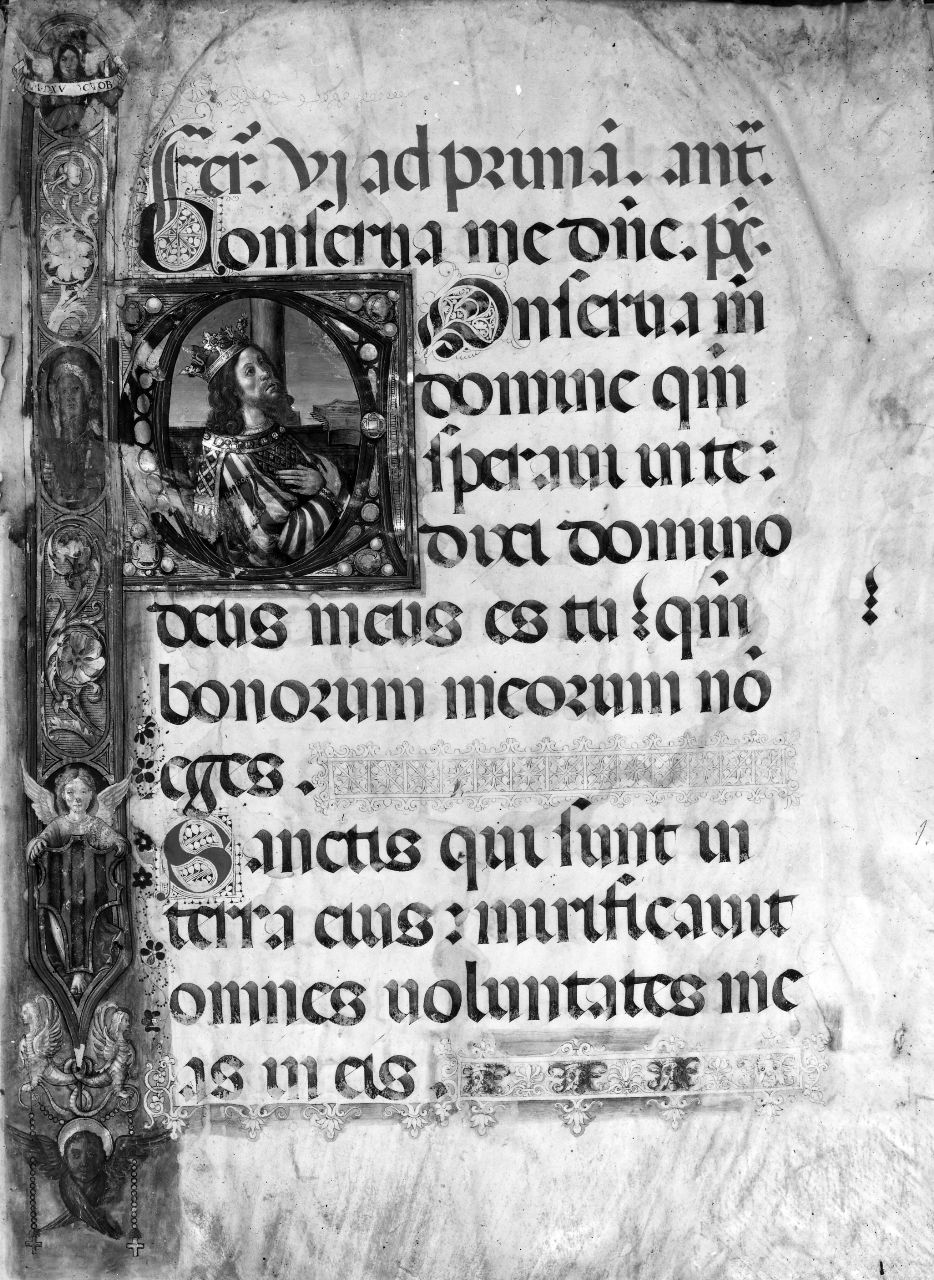 Fer̃. vj ad primā. ant̃.
Conserua me dñe. ps̃.
Conserua m̃
domine qm̃
speraui in te:
dixi domino
deus meus es tu : qm̃
bonorum meorum nō
eges.
Sanctis qui sunt in
terra eius : mirificauit
omnes uoluntates me
as in eis.